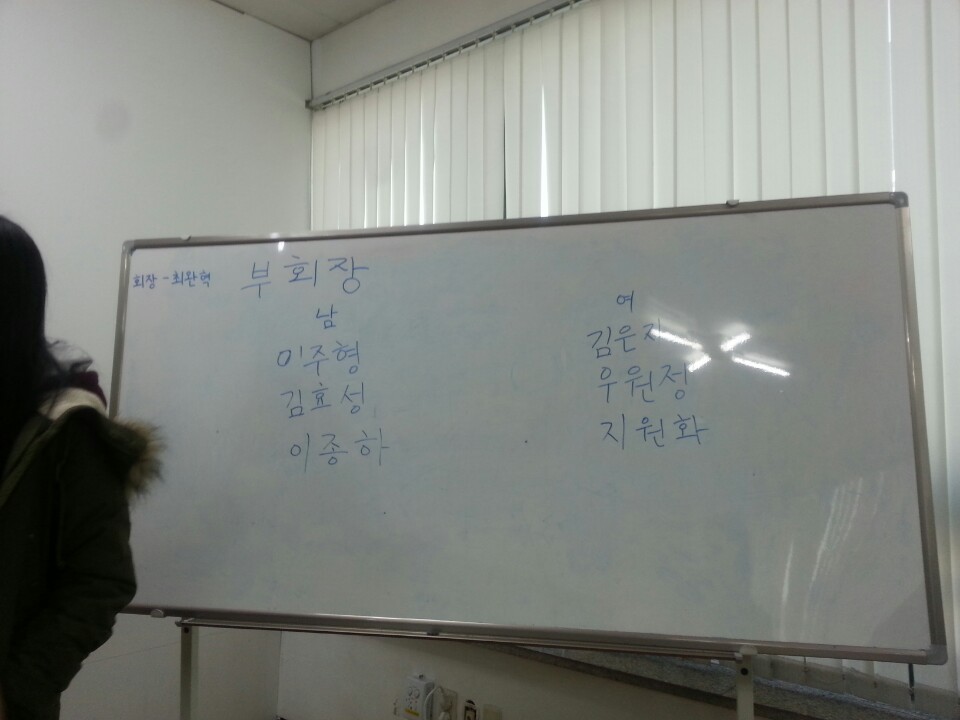 회장 - 최완혁
부회장
남
이주형
김효성
이종하
여
김은지
우원정
지원화